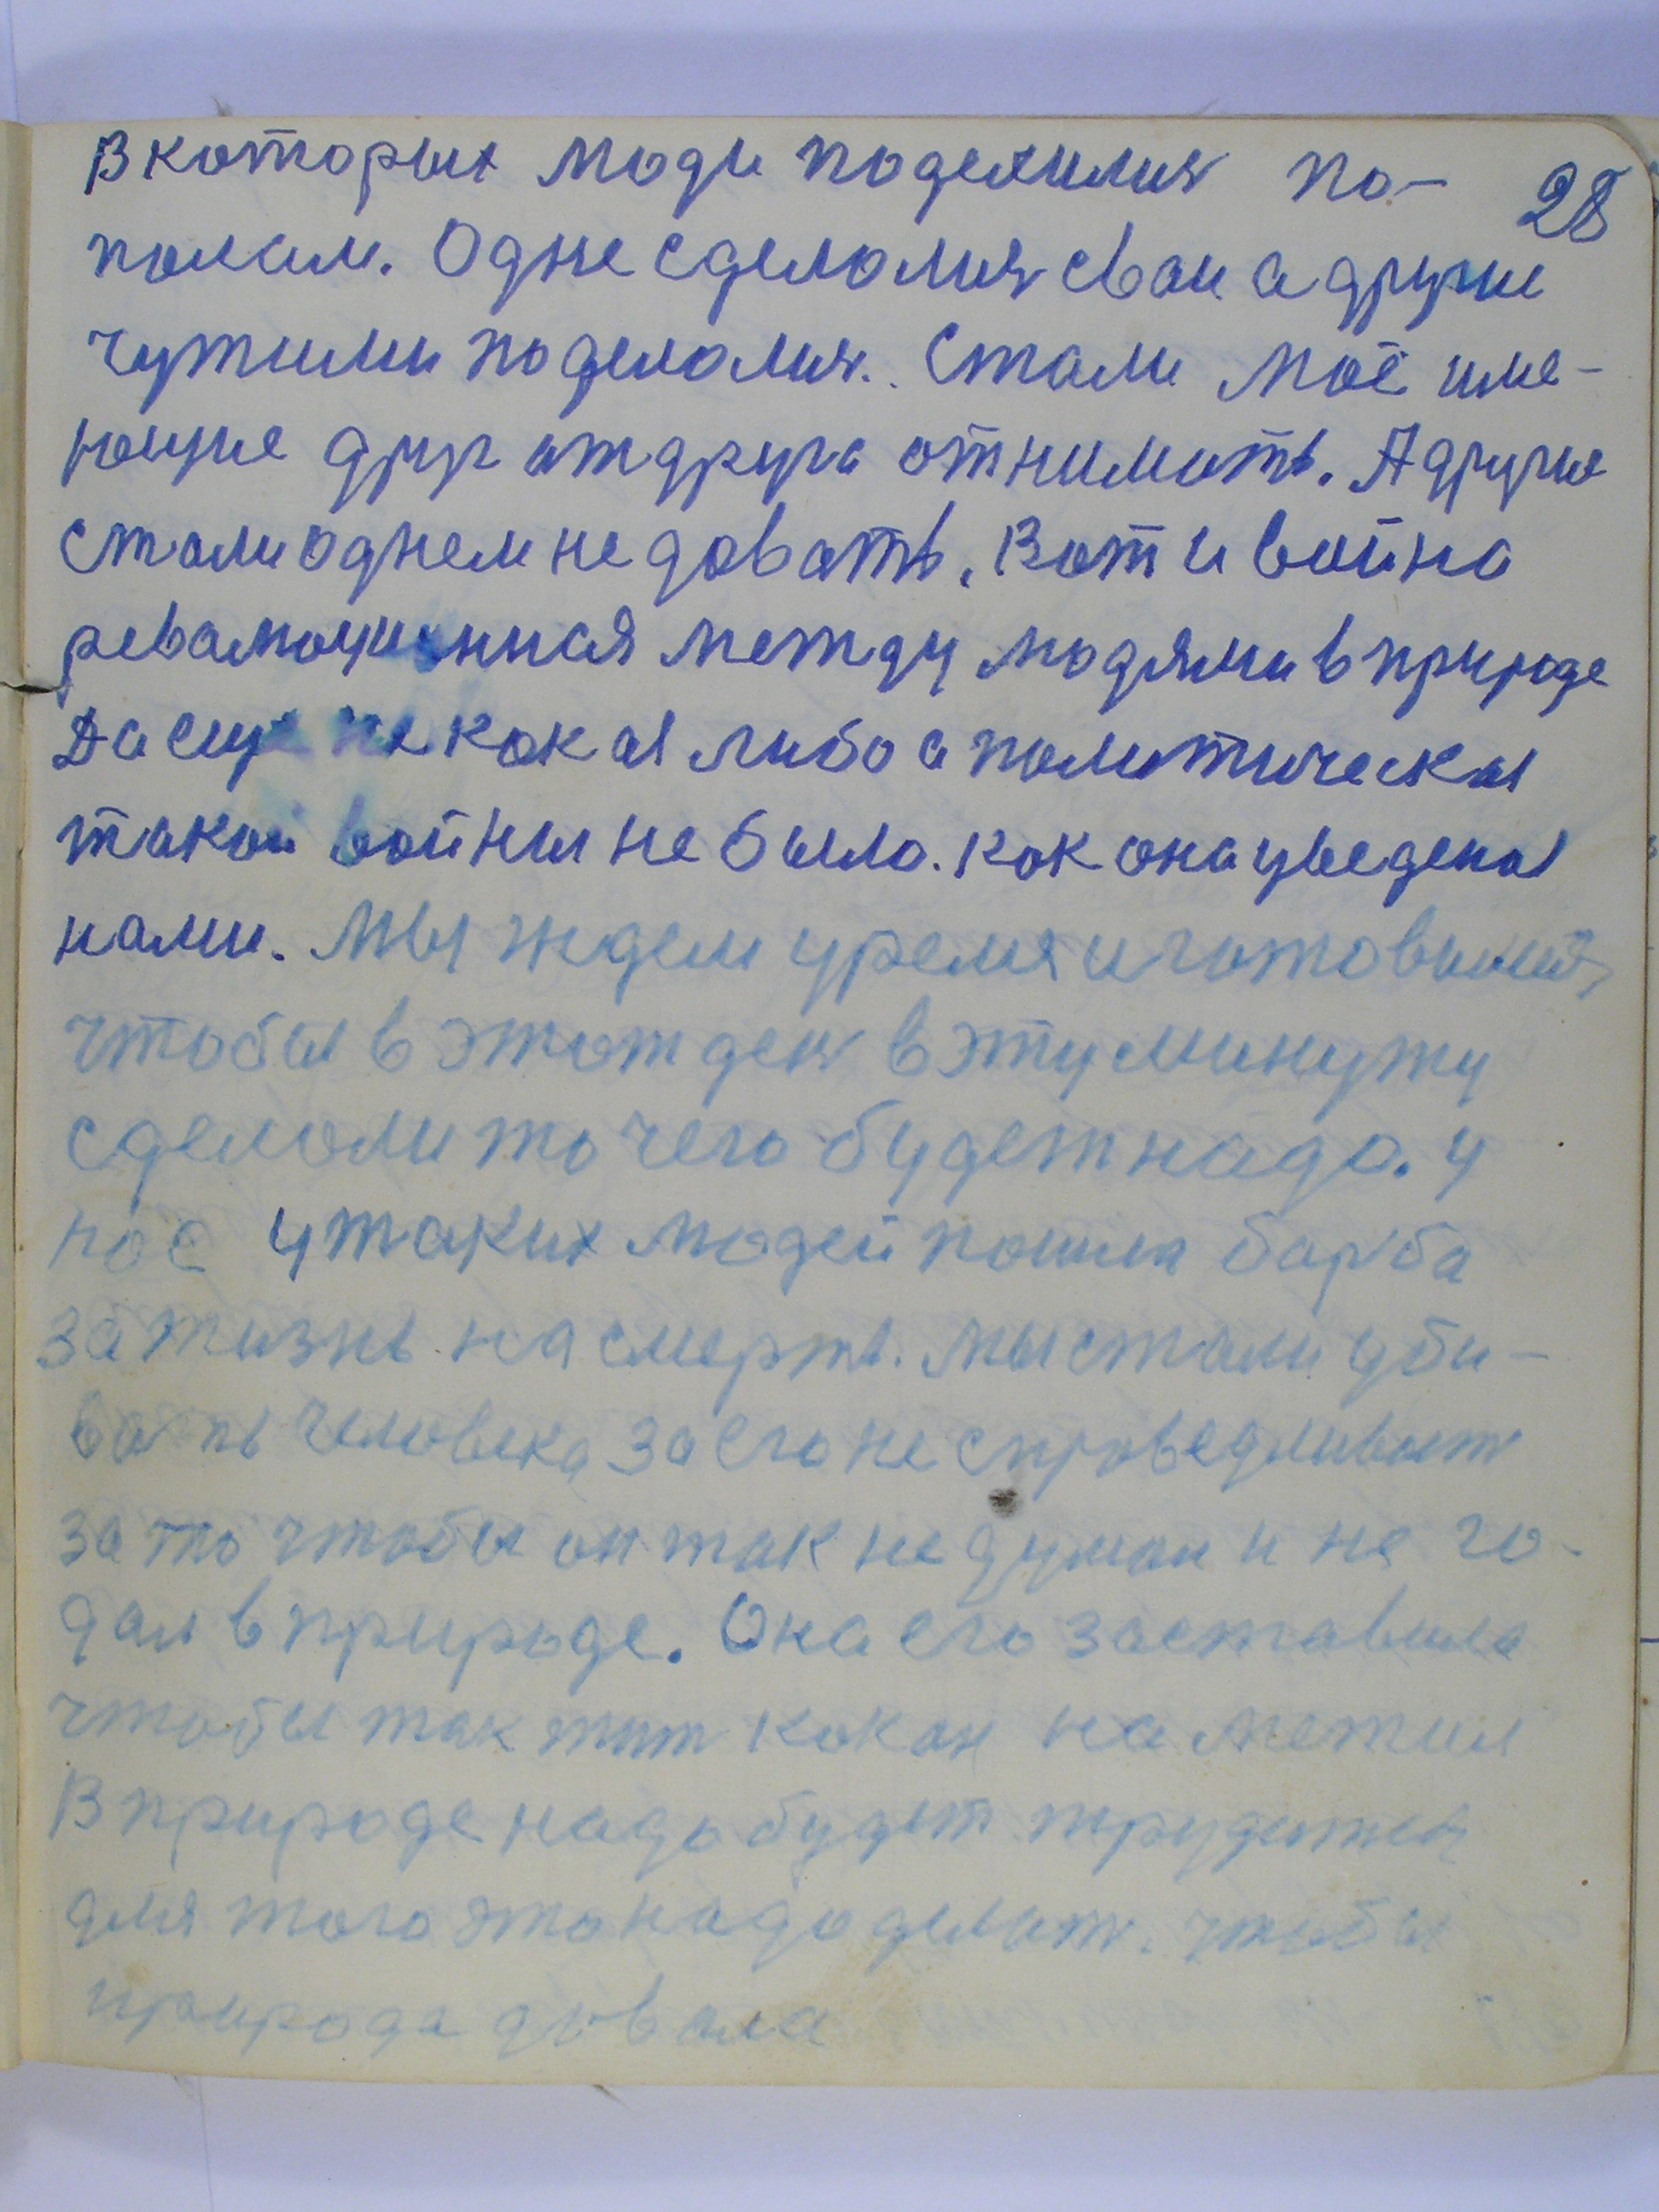 В которых люди поделилия по- 28
полам. Одне сделолия свои а другие
чужими поделолия. Стали моё име-
ющие друг от друга отнимать. А другие
стали однем не довать. Вот и война
революционная между людями в природе
Да ещ не кокая либо а политическая
такой войны не было. кок она уведеная
нами. Мы ждем уремя и готовимся,
чтобы в этот ден в эту минуту
сделоли то чего будет надо. у
нос у таких людей пошла барба
за жизнь на смерть. мы стали уби-
вать человека за его не справедливост
за то чтобы он так не думал и не го-
дал в природе. Она его заставила
чтобы так жит кокон на метил
В природе надо будет трудится
для того это надо делат. чтобы
природа довала